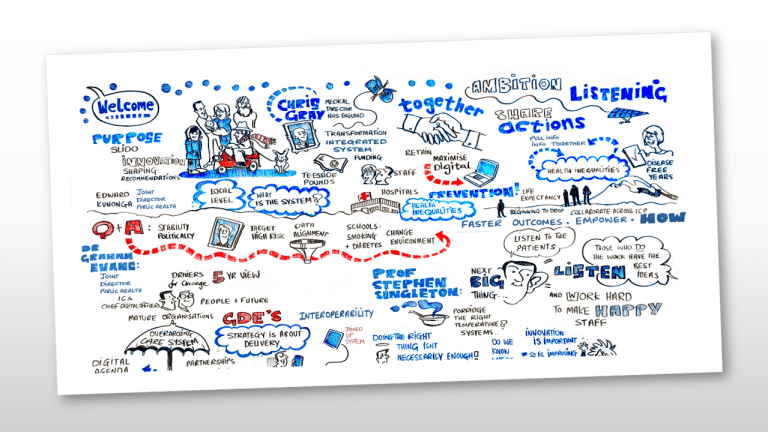 Welcome
PURPOSE
SLIDO
INNOVATION
SHAPING
RECOMMENDATIONS
EDWARD
KUNONGA
JOINT
DIRECTOR
PUBLIC HEALTH
CHRIS
GRAY
MEDICAL
DIRECTOR
NHS ENGLAND
TRANSFORMATION
INTEGRATED
SYSTEM
FUNDING
TEESSIDE
POUNDS
STAFF
HOSPITALS
LOCAL
LEVEL
WHAT
IS THE SYSTEM?
together
RETAIN
MAXIMISE
Digital
PREVENTION!
HEALTH
INEQUALITIES
AMBITION
LISTENING
SHARE
actions
PULL INFO
INFO TOGETHER
HEALTH INEQUALITIES
DISEASE
FREE
YEARS
LIFE
EXPECTANCY
BEGINNING TO DROP
COLLABORATE ACROSS ICP
FASTER OUTCOMES. EMPOWER. HOW
Q+A:
STABILITY
POLITICALLY
TARGET
HIGH RISK
DATA
ALIGNMENT
SCHOOLS:
SMOKING
+ DIABETES
CHANGE
ENVIRONMENT
DR
GRAHAM
EVANS:
JOINT
DIRECTOR
PUBLIC HEALTH
ICS
CHIEF DIGITAL OFFICER
DRIVERS
for Change
5 YR VIEW
PEOPLE + FUTURE
MATURE ORGANISATIONS
GDE'S
INTEROPERABILITY
OVERARCHING
CARE SYSTEM
STRATEGY IS ABOUT
DELIVERY
JOINED
UP
SYSTEM
DIGITAL
AGENDA
PARTNERSHIPS
PROF
STEPHEN
SINGLETON:
PORRIDGE
THE RIGHT
TEMPERATURE?
SYSTEMS..
DOING THE RIGHT
THING ISNT
NECESSARILY ENOUGH!
NEXT
BIG
THING
LISTEN TO THE
PATIENTS
LISTEN
THOSE WHO DO
THE WORK HAVE THE
BEST
IDEAS
AND WORK HARD
TO MAKE HAPPY
STAFF
DO WE
KNOW
INNOVATION
IS IMPORTANT
SO IS IMPROVING